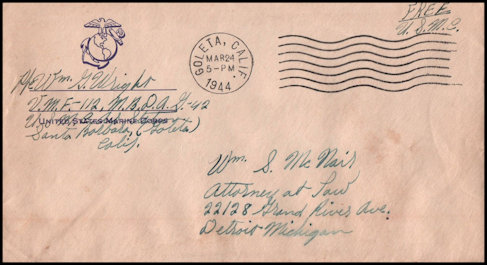 FREE
U.S.M.C.
GOLETA, CALIF.
MAR 24
5-PM
1944
Pfc Wm. G. Wright
V.M.F.-112, M.B.D.A.G.-42
UNITED STATES MARINE CORPS
Santa Barbara, (Goleta)
Calif.
Wm. S. McNair
Attorney at Law
22128 Grand River Ave.
Detroit Michigan